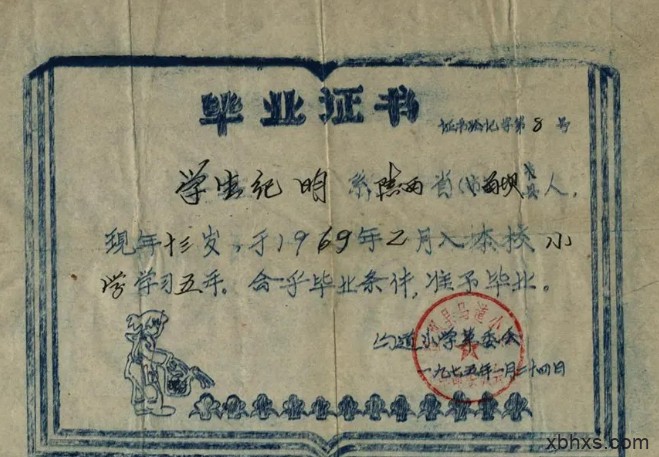 毕业证书
字第8号
学生纪明系陕西省西县人,
现年十三岁,于1969年2月入本校小
学学习五年。合乎毕业条件,准予毕业。
马道小学革委会
一九七五年一月二十四日
xbhxs.com